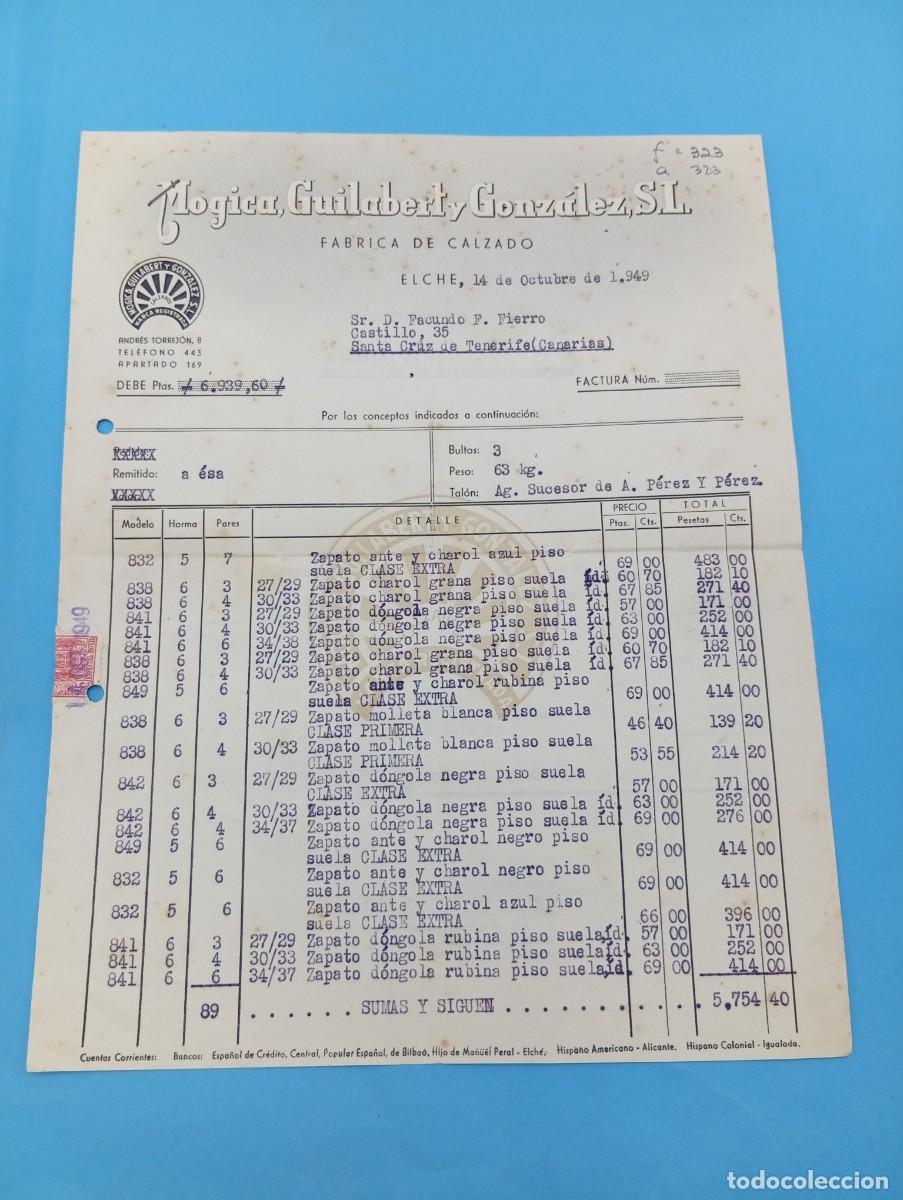 f = 323
a 323
Mogica, Guilabert y González, S.L.
FABRICA DE CALZADO
MOGICA, GUILABERT Y GONZALEZ S.L.
CALZADOS
MARCA REGISTRADA
ANDRÉS TORREJÓN, 8
TELÉFONO 443
APARTADO 169
ELCHE, 14 de Octubre de 1.949
Sr. D. Facundo F. Fierro
Castillo, 35
Santa Cruz de Tenerife(Canarias)
DEBE Ptas. 6.939,60
FACTURA Núm.
Por los conceptos indicados a continuación:
Remitido: a ésa
Bultos: 3
Peso: 63 kg.
Talón: Ag. Sucesor de A. Pérez Y Pérez.
Modelo Horma Pares DETALLE PRECIO Ptas. Cts. TOTAL Pesetas Cts.
832 5 7 Zapato ante y charol azul piso
suela CLASE EXTRA 69 00 483 00
838 6 3 27/29 Zapato charol grana piso suela id. 60 70 182 10
838 6 4 30/33 Zapato charol grana piso suela id. 67 85 271 40
841 6 3 27/29 Zapato dóngola negra piso suela íd. 57 00 171 00
841 6 4 30/33 Zapato dóngola negra piso suela íd. 63 00 252 00
841 6 6 34/38 Zapato dóngola negra piso suela íd. 69 00 414 00
838 6 3 27/29 Zapato charol grana piso suela íd. 60 70 182 10
838 6 4 30/33 Zapato charol grana piso suela íd. 67 85 271 40
849 5 6 Zapato ante y charol rubina piso
suela CLASE EXTRA 69 00 414 00
838 6 3 27/29 Zapato molleta blanca piso suela
CLASE PRIMERA 46 40 139 20
838 6 4 30/33 Zapato molleta blanca piso suela
CLASE PRIMERA 53 55 214 20
842 6 3 27/29 Zapato dóngola negra piso suela
CLASE EXTRA 57 00 171 00
842 6 4 30/33 Zapato dóngola negra piso suela íd. 63 00 252 00
842 6 4 34/37 Zapato dóngola negra piso suela íd. 69 00 276 00
849 5 6 Zapato ante y charol negro piso
suela CLASE EXTRA 69 00 414 00
832 5 6 Zapato ante y charol negro piso
suela CLASE EXTRA 69 00 414 00
832 5 6 Zapato ante y charol azul piso
suela CLASE EXTRA 66 00 396 00
841 6 3 27/29 Zapato dóngola rubina piso suela íd. 57 00 171 00
841 6 4 30/33 Zapato dóngola rubina piso suela íd. 63 00 252 00
841 6 6 34/37 Zapato dóngola rubina piso suela íd. 69 00 414 00
89 ...... SUMAS Y SIGUEN ............ 5.754 40
Cuentas Corrientes: Bancos: Español de Crédito, Central, Popular Español, de Bilbao, Hijo de Manuel Peral - Elche. Hispano Americano - Alicante. Hispano Colonial - Igualada.
todocoleccion